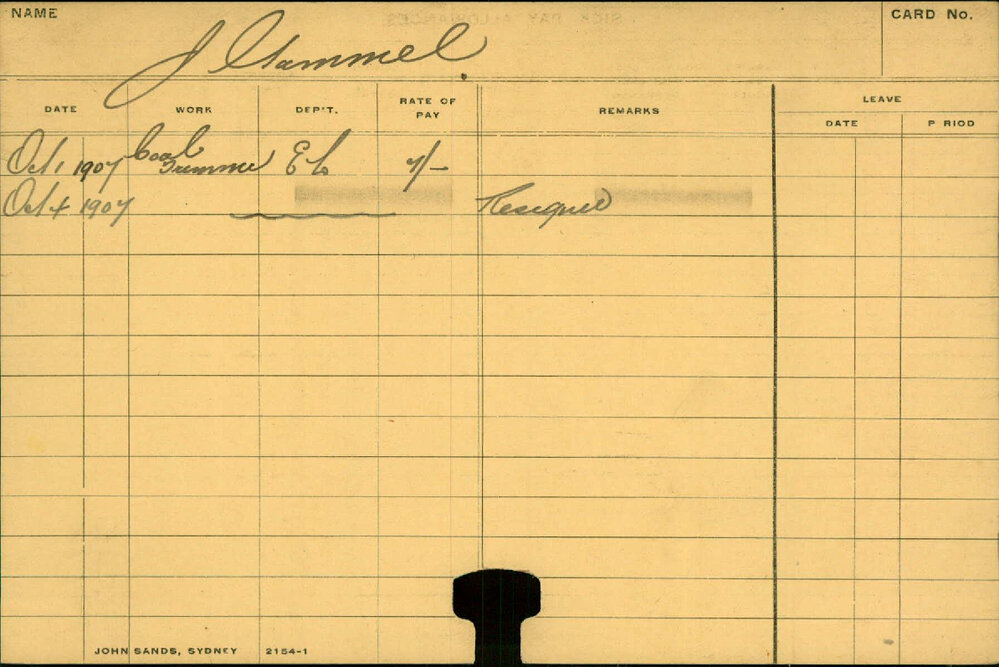 NAME
J Gammel
CARD No.
DATE WORK DEP'T. RATE OF PAY REMARKS LEAVE
DATE P RIOD
Oct 1 1907 Coal Trimmer EL 7/-
Oct 4 1907 Resigned
JOHN SANDS, SYDNEY 2154-1